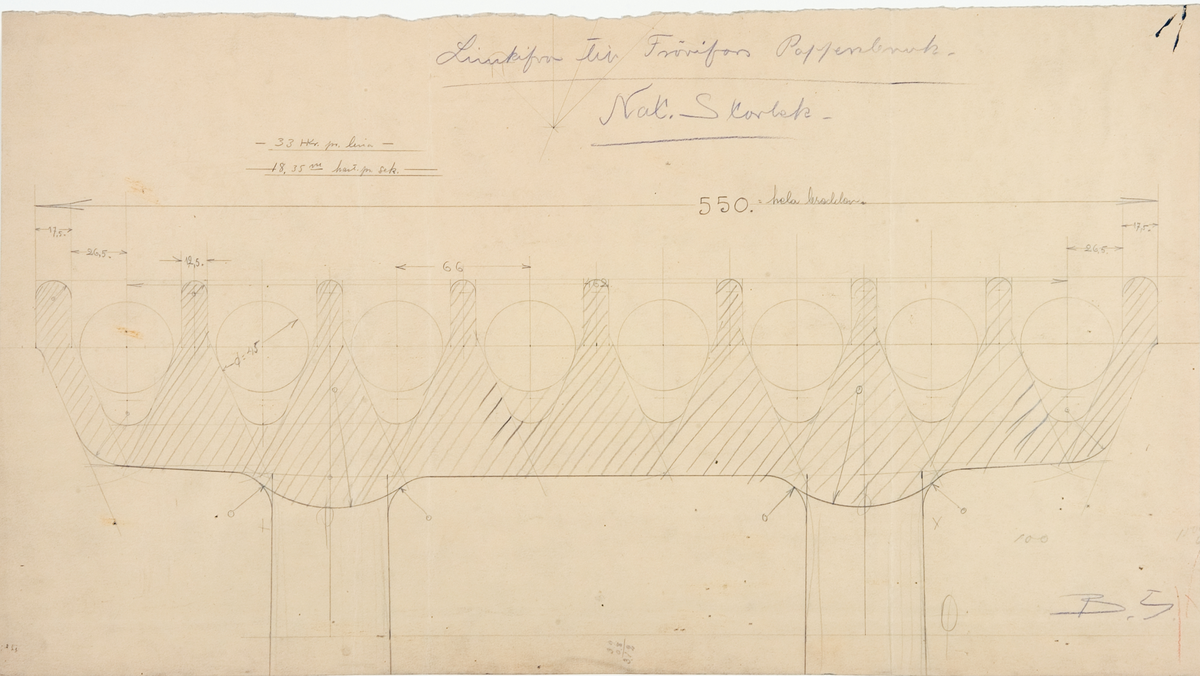 Linskifva till Frövifors Pappersbruk.
Nat. Storlek.
33 Hkr. pr. lina
18,35 m hast. pr. sek.
550. hela bredden
17,5. 17,5.
26,5. 12,5. 66 26,5.
ø=45
100
B. S